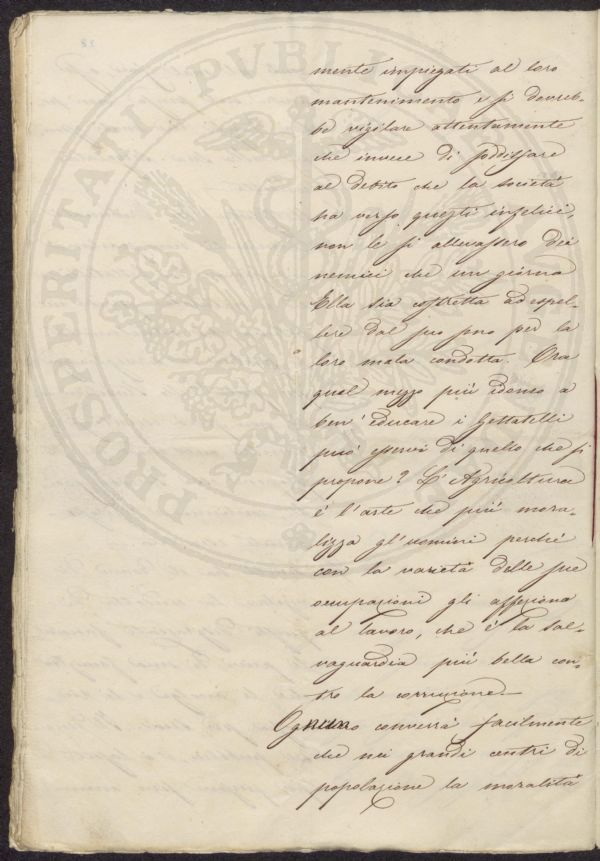 mente impiegati al loro
mantenimento e si dovreb-
be vigilare attentamente
che invece di soddisfare
al debito che la società
ha verso questi infelici,
non le si allevassero dei
nemici che un giorno
Ella sia costretta ad espel-
lere dal suo seno per la
loro mala condotta. Ora
qual mezzo più idoneo a
ben'educare i Gettatelli
può esservi di quello che si
propone? L'Agricoltura
è l'arte che più mora-
lizza gl'uomini perché
con la varietà delle sue
occupazioni gli affeziona
al lavoro, che è la sal-
vaguardia più bella con-
tro la corruzione.—
Ognuno converrà facilmente
che nei grandi centri di
popolazione la moralità
PROSPERITATI PVBLICAE